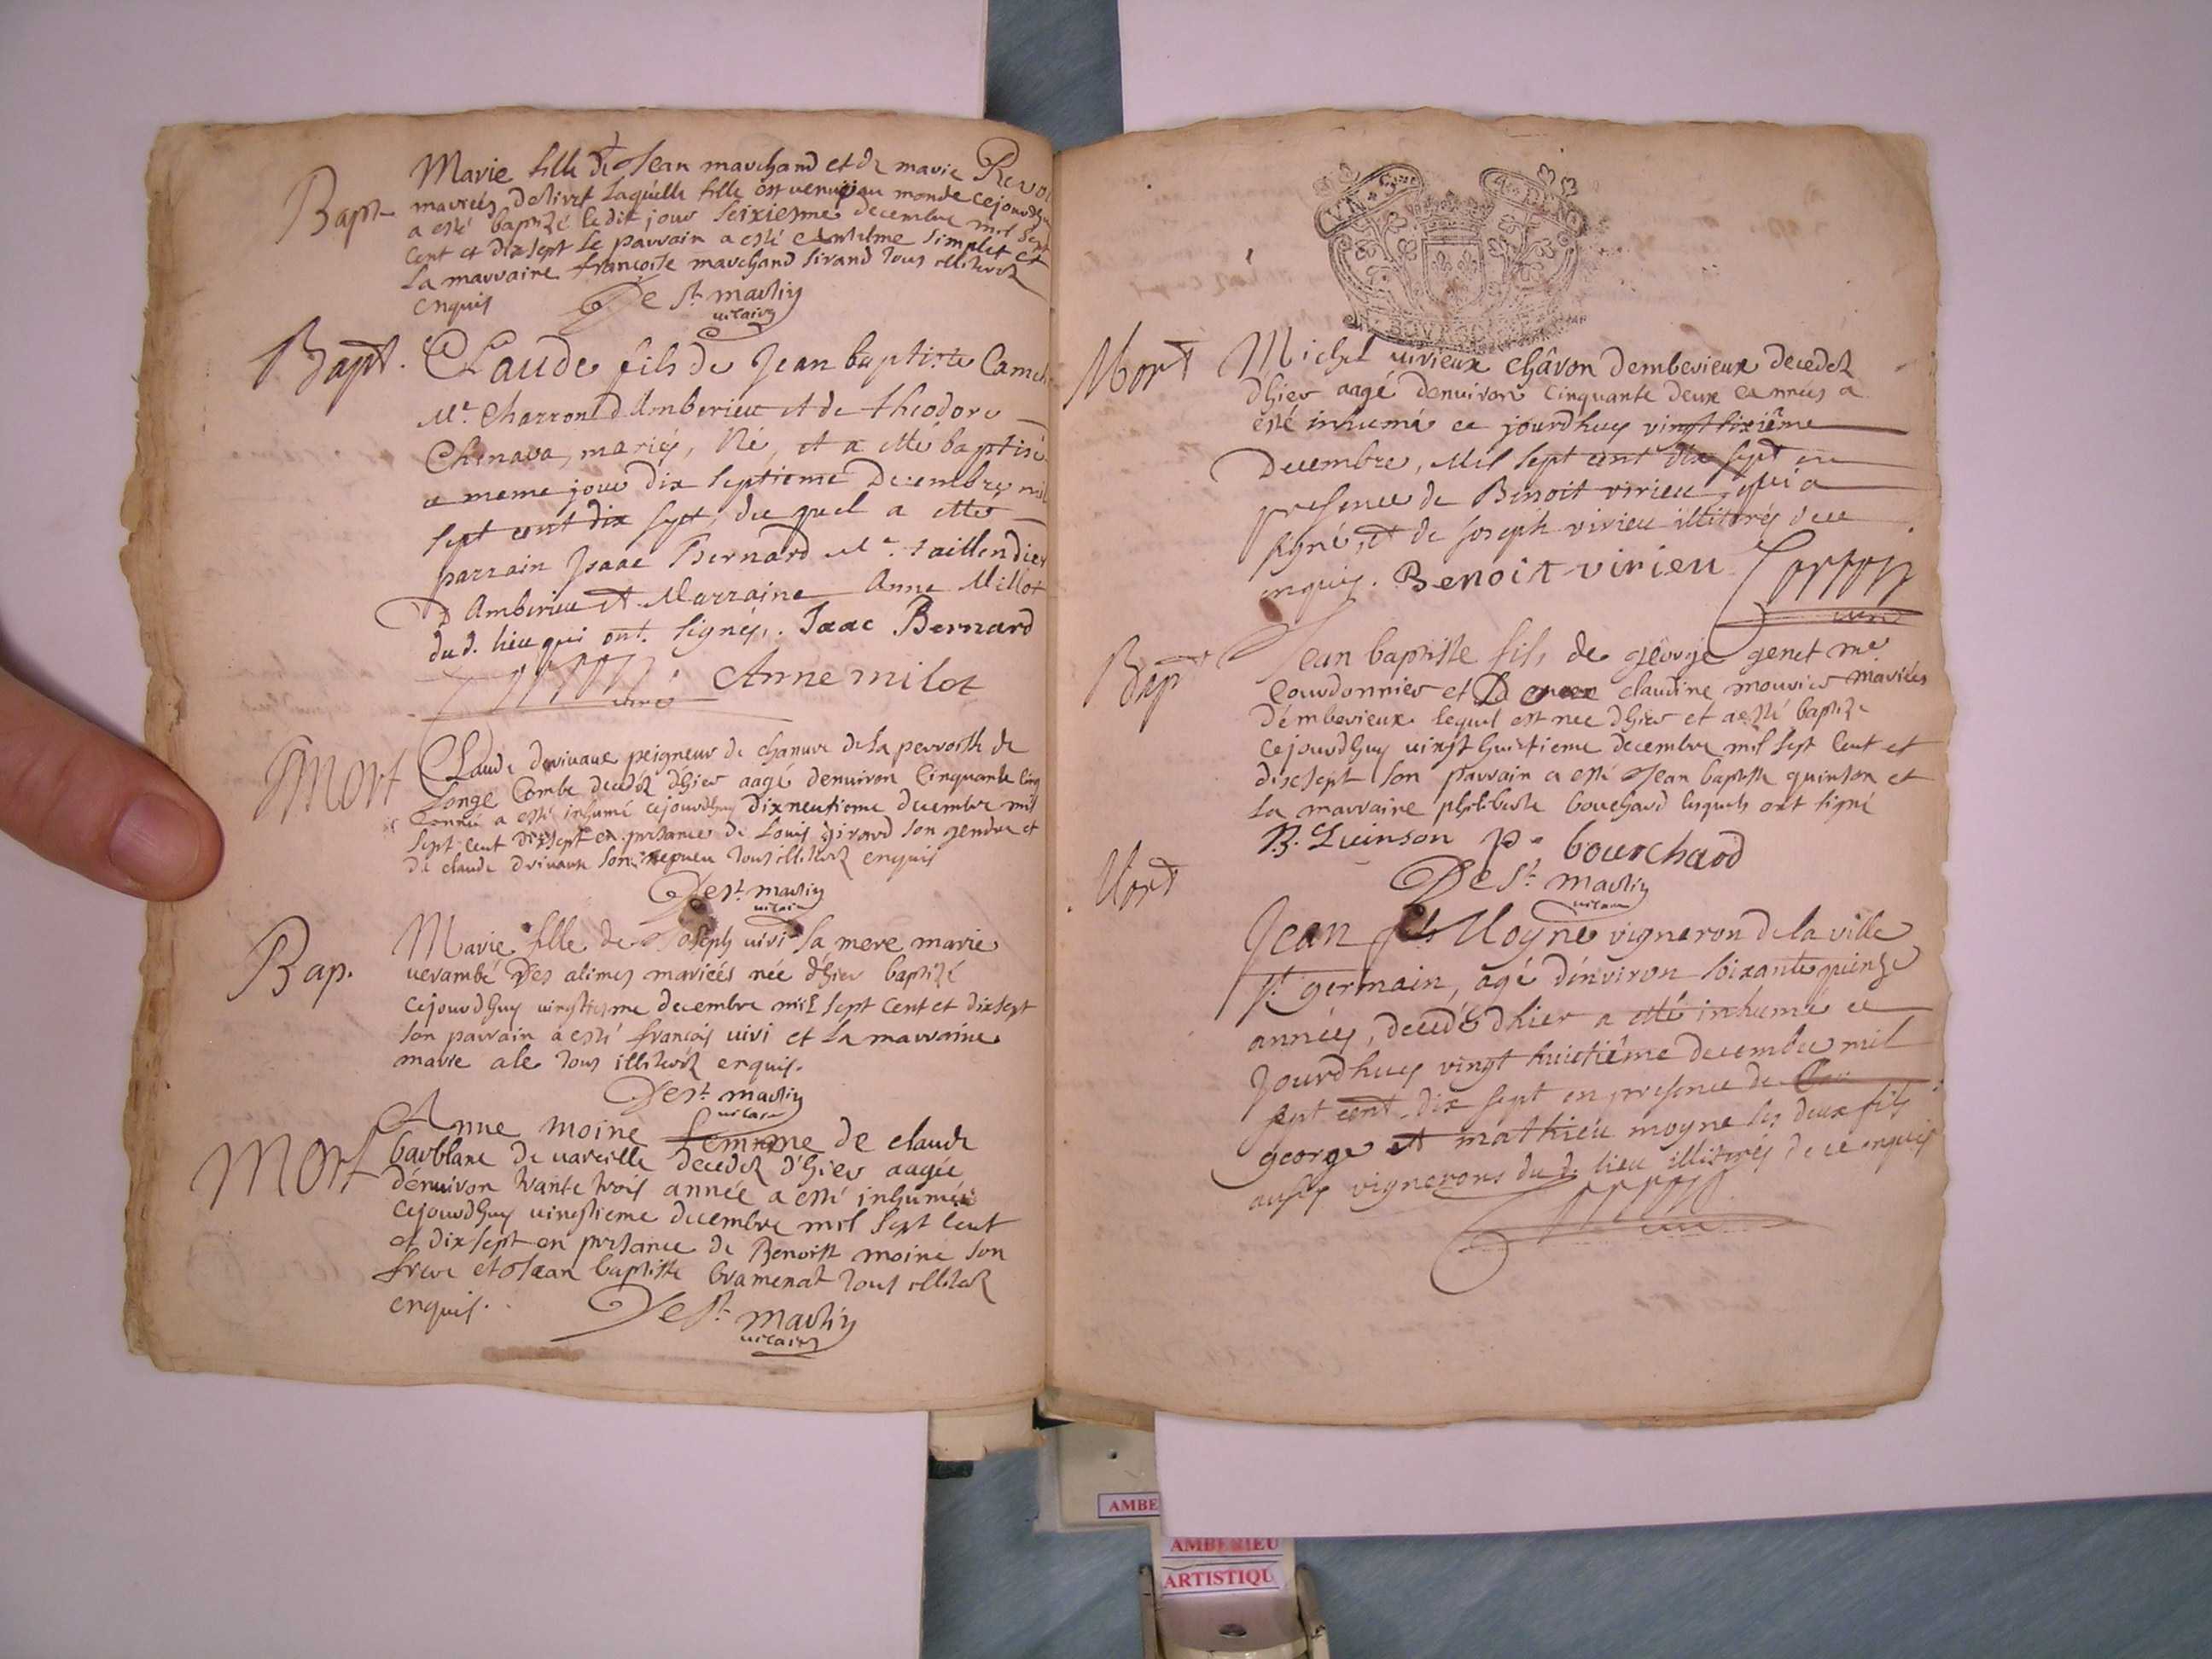 Bapt
Marie fille de Jean marchand et de marie
mariés laquelle fille est venue au monde cejourdhuy
a esté baptizé ledit jour seixiesme decembre mil sept
cent et dixsept Le parrain a esté simplet et
La marraine françoise marchand tous
enquis
De St martin
vicaire
Bapt.
Claude fils de Jean baptiste
Mr. Charron d'Amberieu et de theodore
Chenava, mariés, Né, et a etté baptisé
ce meme jour dix septieme Decembre mil
sept cent dix sept, du quel a etté
parrain Isaac Bernard Mr. taillendier
D'Amberieu et Marraine Anne Millot
du d. lieu qui ont signés. Isaac Bernard
Anne milot
curé
Mort
Claude peigneur de chanure de la perroisse de
Longe Combe decedez d'hier aagé denuiron Cinquante Cinq
année a esté inhumé cejourdhuy dixneufieme decembre mil
sept cent dixsept en presance de Louis girard son gendre et
de claude son nepueu tous illiterez enquis
De st martin
vicaire
Bap.
Marie fille de Joseph uiui sa mere marie
des alimes mariéés née d'hier baptizé
cejourdhuy uingtiesme decembre mil sept cent et dixsept
son parrain a esté françois uiui et La marraine
marie ale tous illiterez enquis.
De st martin
vicaire
Mort
Anne moine femme de claude
barblanc de uareille decedez d'hier aagée
dénuiron trante trois année a esté inhumée
cejourdhuy uingtieme decembre mil sept cent
et dixsept en presance de Benoist moine son
frere et Jean baptiste bramerat tous illiterez
enquis.
De St martin
vicaire
UN S
BOURGOGNE
Mort
Michel uirieux châron demberieux decedez
dhier aagé denuiron Cinquante deux années a
esté inhumé ce jourdhuy vingt sixiême
Decembre, Mil sept cent dix sept en
presence de Benoit virieu qui a
signé, et de joseph virieu illiterés de ce
enquis. Benoit virieu
curé
Bap
Jean baptiste fils de george genet me
Courdonnier et claudine mourier mariéés
d'emberieux lequel est nee dhier et a esté baptizé
cejourdhuy uingt huictieme decembre mil sept Cent et
dixsept son parrain a esté Jean baptiste quinson et
La marraine philiberte bouchard lesquels ont signé
B. Quinson p. bourchard
De St martin
vicaire
Mort
Jean Moyne vigneron de la ville
st. germain, agé d'environ soixante quinze
années, decedé dhier a etté inhumé ce
Jourdhuy vingt huictiême decembre mil
sept cent dix sept en presence de
george et mathieu moyne ses deux fils
aussy vignerons du d. lieu illiterés de ce enquis
curé
AMBE
AMBERIEU
ARTISTIQU